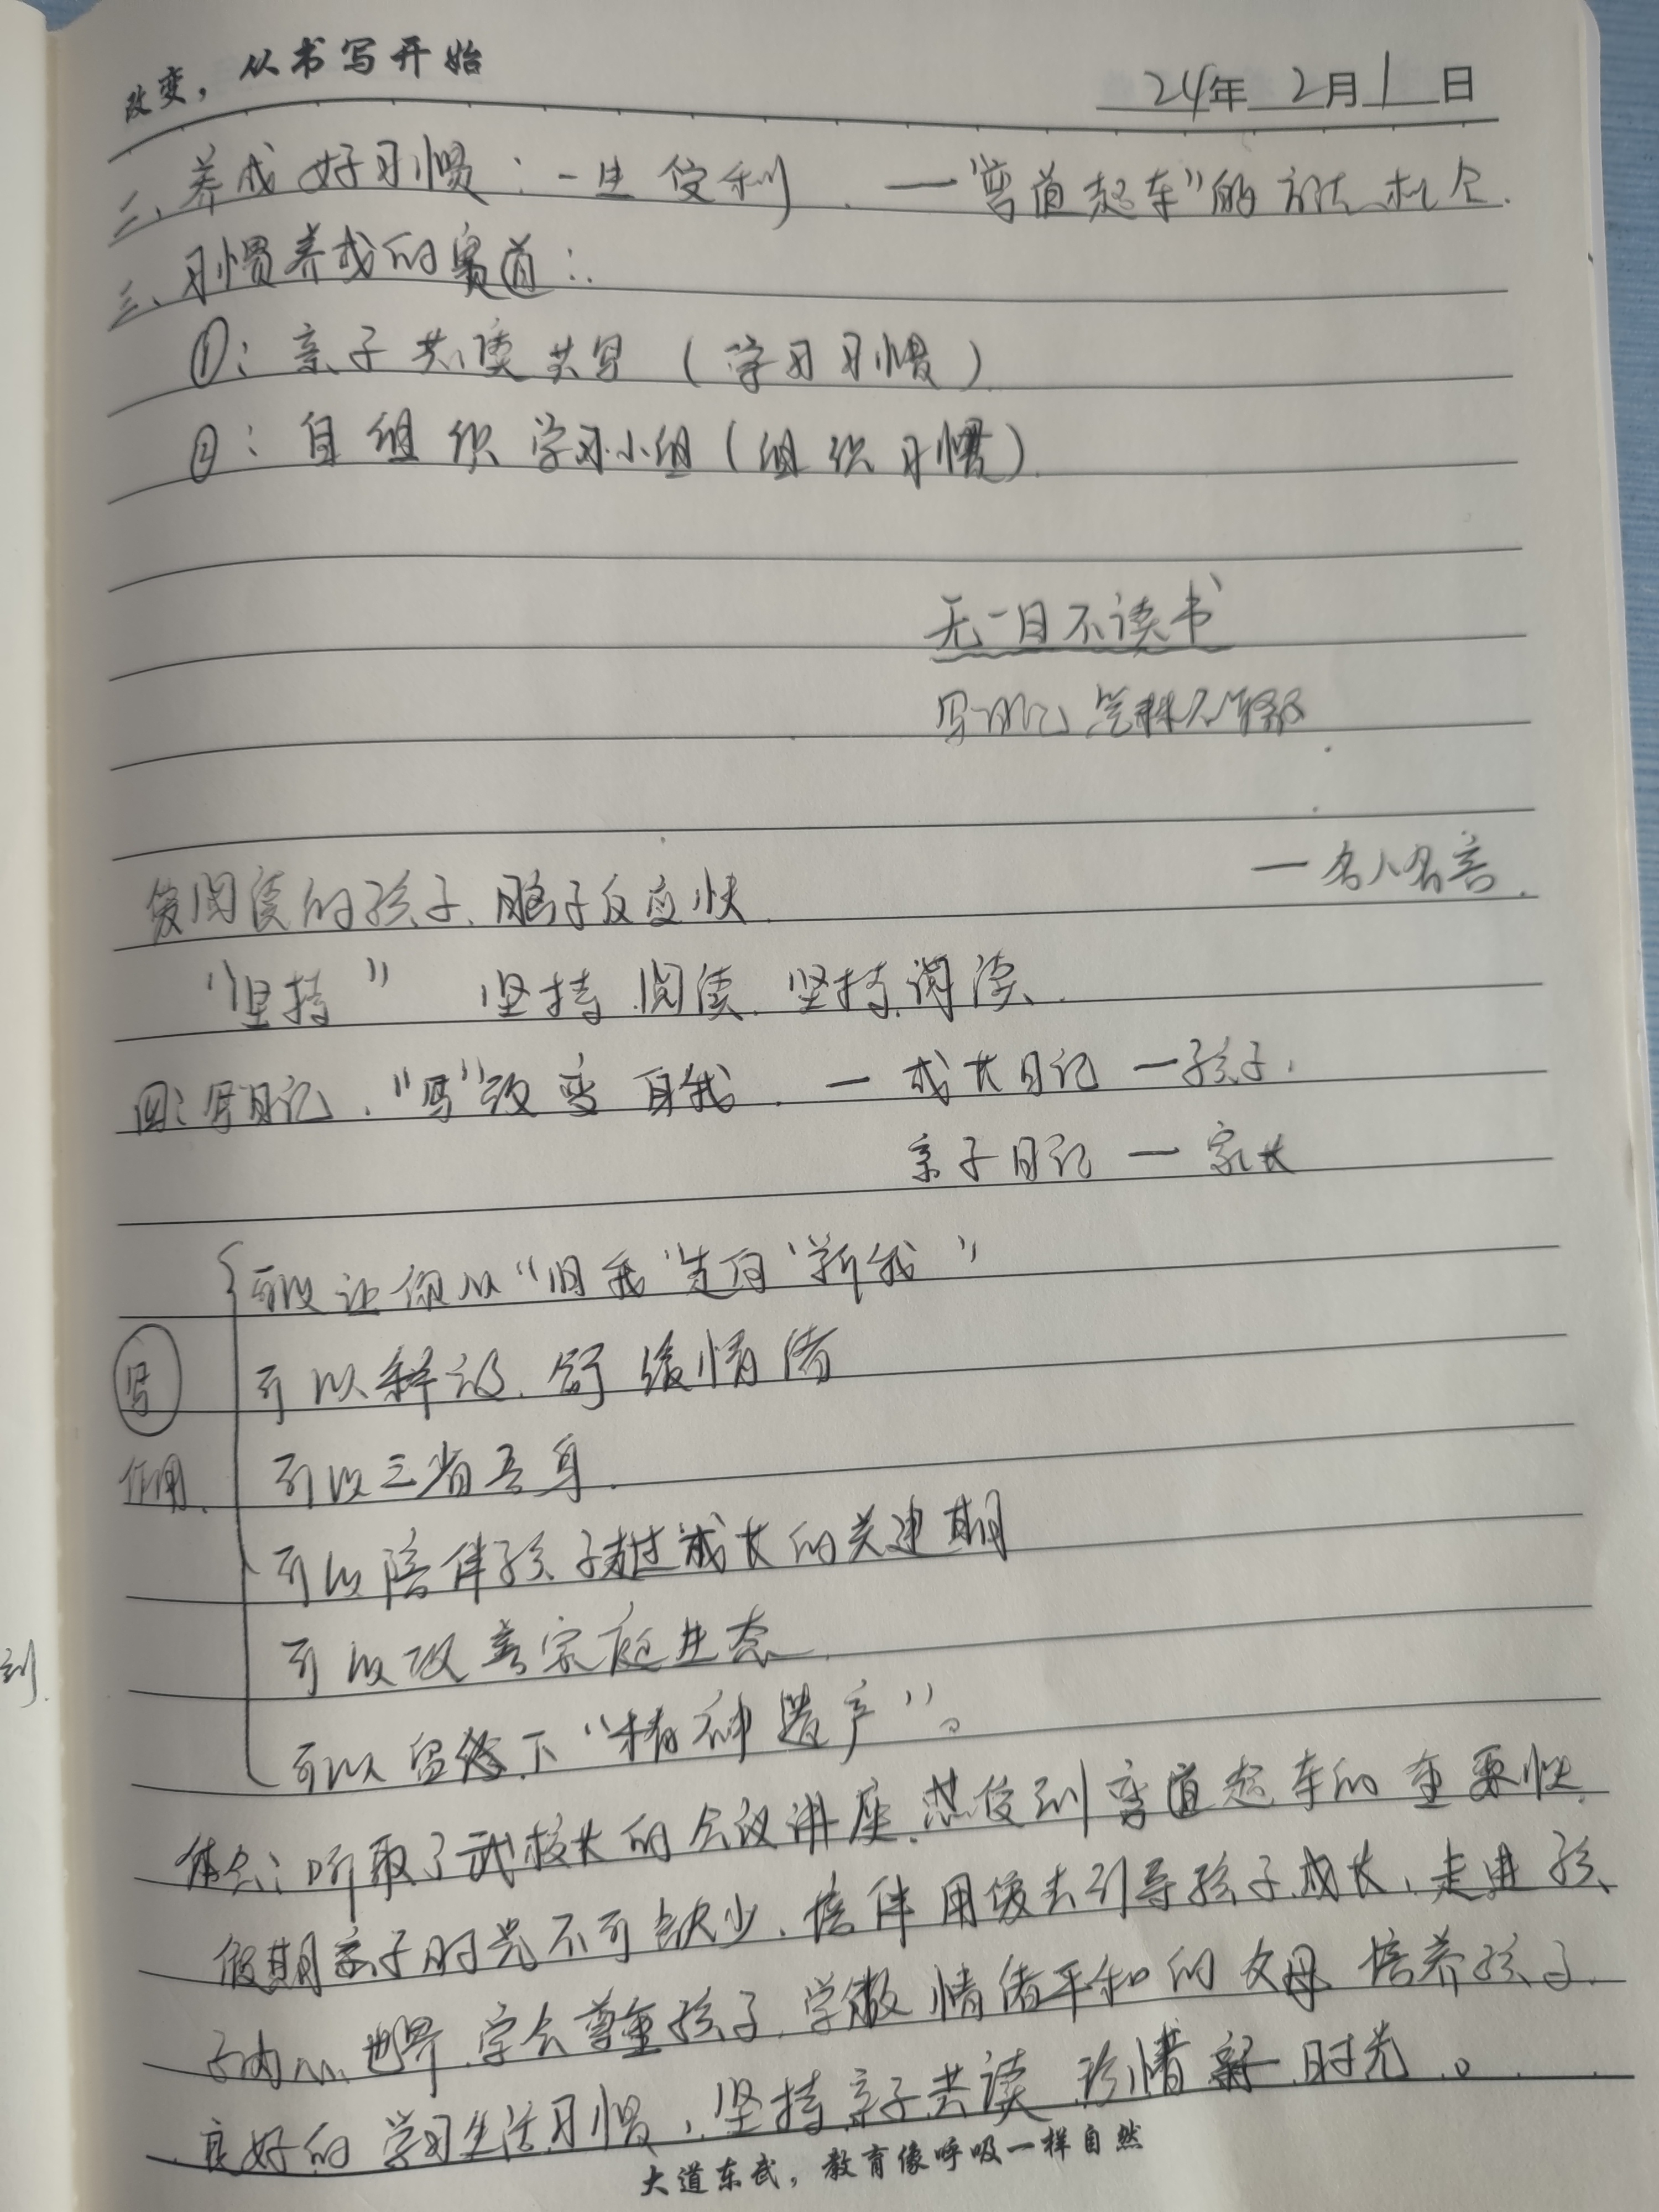 改变，从书写开始
24年2月1日
二、养成好习惯：一生受利.—"弯道超车"的方法机会.
三、习惯养成的赛道：
①：亲子共读共写（学习习惯）
②：自组织学习小组（组织习惯）
无一日不读书
写
—名人名言.
爱阅读的孩子、脑子反应快.
"坚持" 坚持阅读.坚持诵读.
四：写日记."写"改变自我.—成长日记—孩子.
亲子日记—家长
可以让你从"旧我"走向"新我"
写
作用.
可以释放.舒缓情绪
可以三省吾身.
可以陪伴孩子越过成长的关建期
可以改善家庭生态
可以留下"精神遗产"。
体会：听取了武校长的会议讲座.感受到弯道超车的重要性.
假期亲子时光不可缺少.陪伴用爱去引导孩子成长，走进孩
子内心世界.学会尊重孩子.学做情绪平和的父母.培养孩子
良好的学习生活习惯，坚持亲子共读.珍惜亲子时光。
大道东武，教育像呼吸一样自然
到.